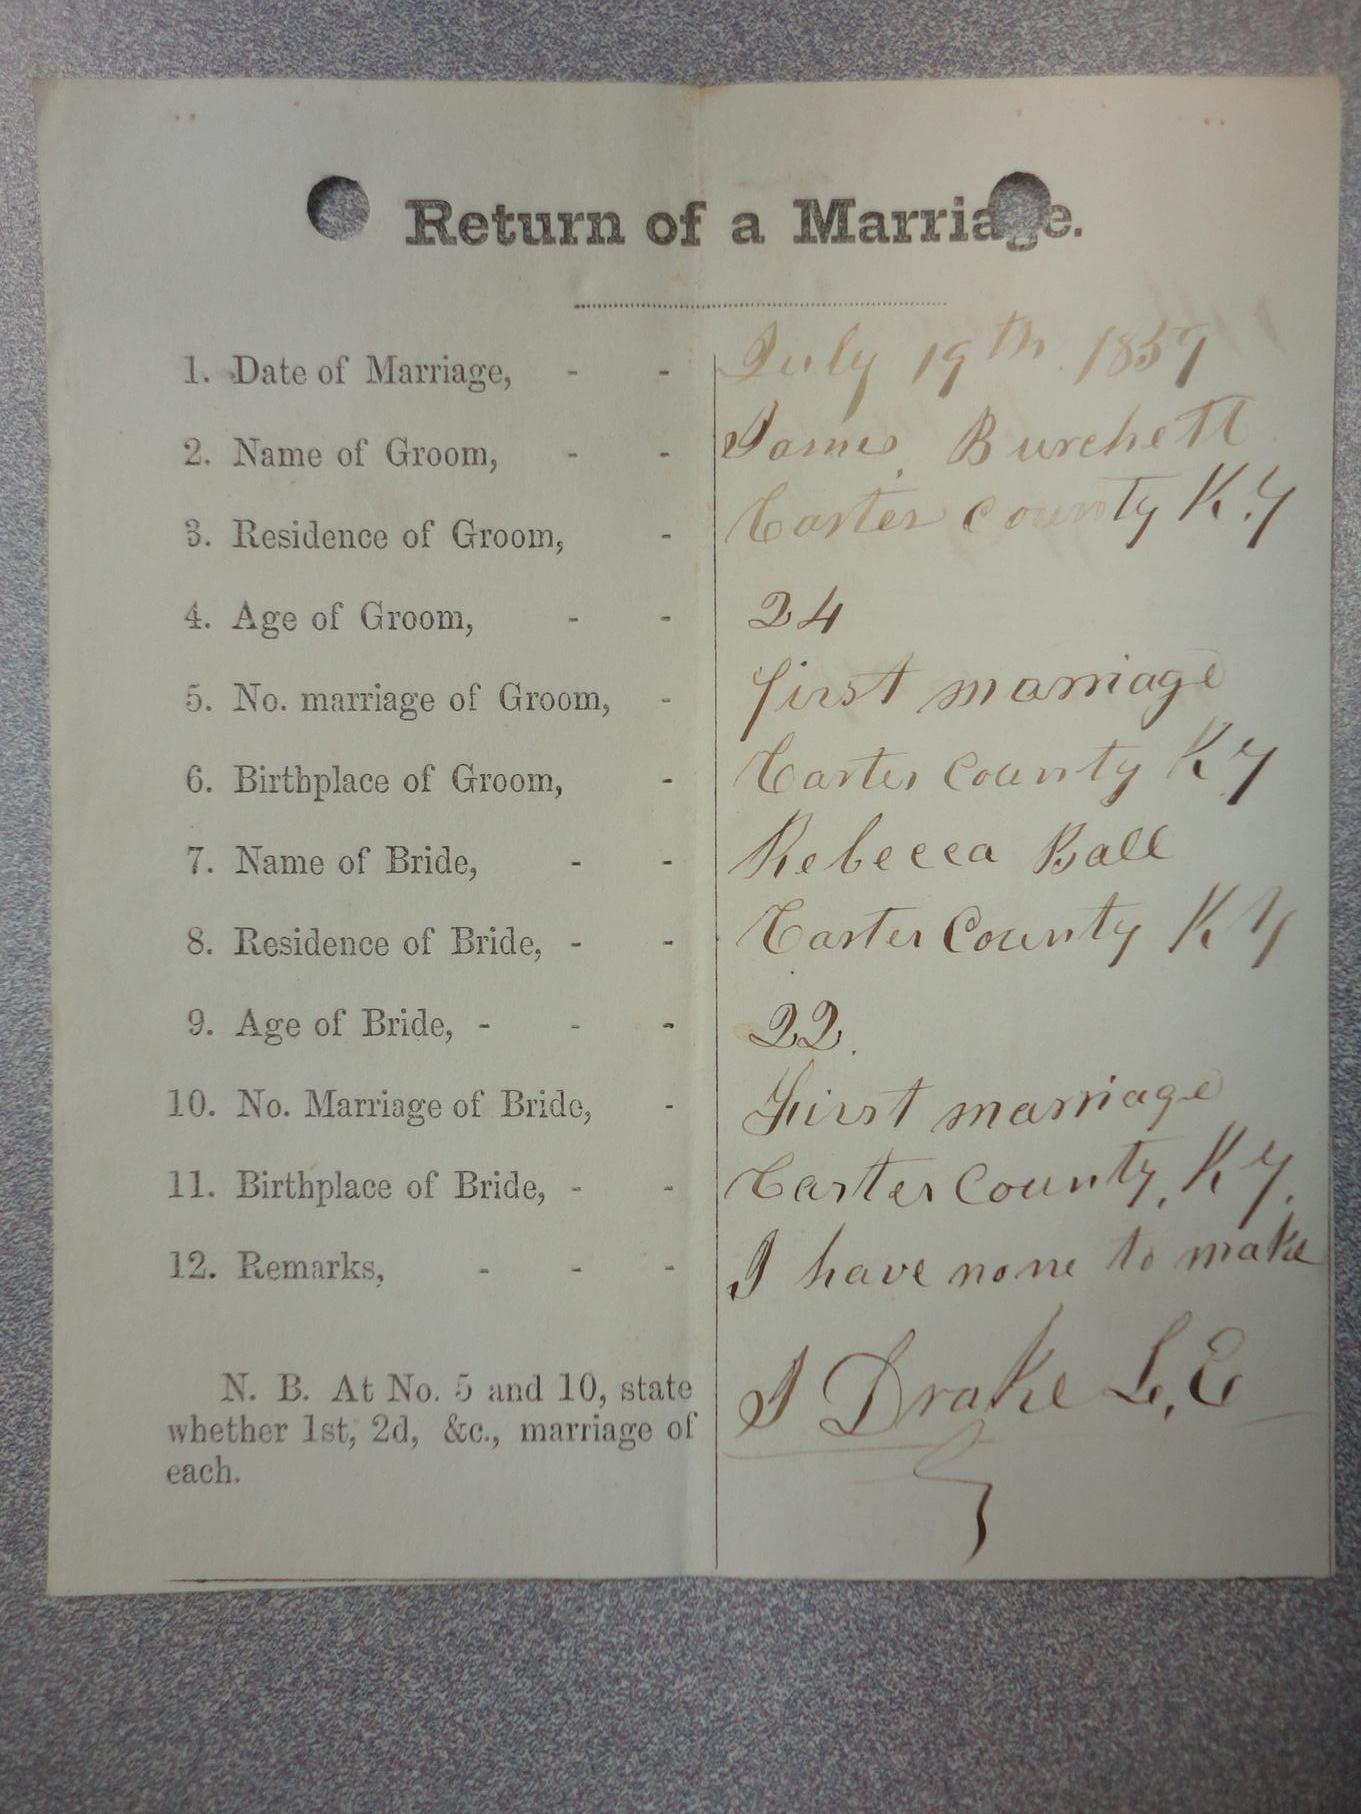 Return of a Marriage.
1. Date of Marriage, - - July 19th 1859
2. Name of Groom, - - James Burchett
3. Residence of Groom, - Carter county K.Y
4. Age of Groom, - - 24
5. No. marriage of Groom, - first marriage
6. Birthplace of Groom, - Carter County KY
7. Name of Bride, - - Rebecca Ball
8. Residence of Bride, - - Carter County KY
9. Age of Bride, - - - 22.
10. No. Marriage of Bride, - First marriage
11. Birthplace of Bride, - - Carter County, KY.
12. Remarks, - - - I have none to make
N. B. At No. 5 and 10, state
whether 1st, 2d, &c., marriage of
each.
J Drake L, E